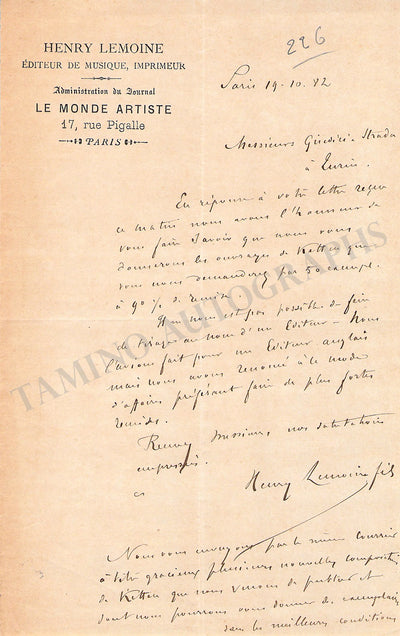 226
HENRY LEMOINE
ÉDITEUR DE MUSIQUE, IMPRIMEUR
Administration du Journal
LE MONDE ARTISTE
17, rue Pigalle
PARIS
Paris 19. 10. 82
Messieurs Giudici & Strada
à Turin.
En réponse à votre lettre reçue
ce matin nous avons l'honneur de
vous faire savoir que nous vous
donnerons les ouvrages de Ketten que
vous nous demanderez par 50 exempl.
à 90 % de remise.
Il ne nous est pas possible de faire
de tirage au nom d'un Editeur – Nous
l'avons fait pour un Editeur anglais
mais nous avons renoncé à ce mode
d'affaires préférant faire de plus fortes
remises.
Recevez Messieurs nos salutations
empressées.
Henry Lemoine fils
Nous vous envoyons par le même courrier
à titre gracieux plusieurs nouvelles compositions
de Ketten que nous venons de publier et
dont nous pourrons vous donner des exemplaires
dans les meilleures conditions
TAMINO AUTOGRAPHS